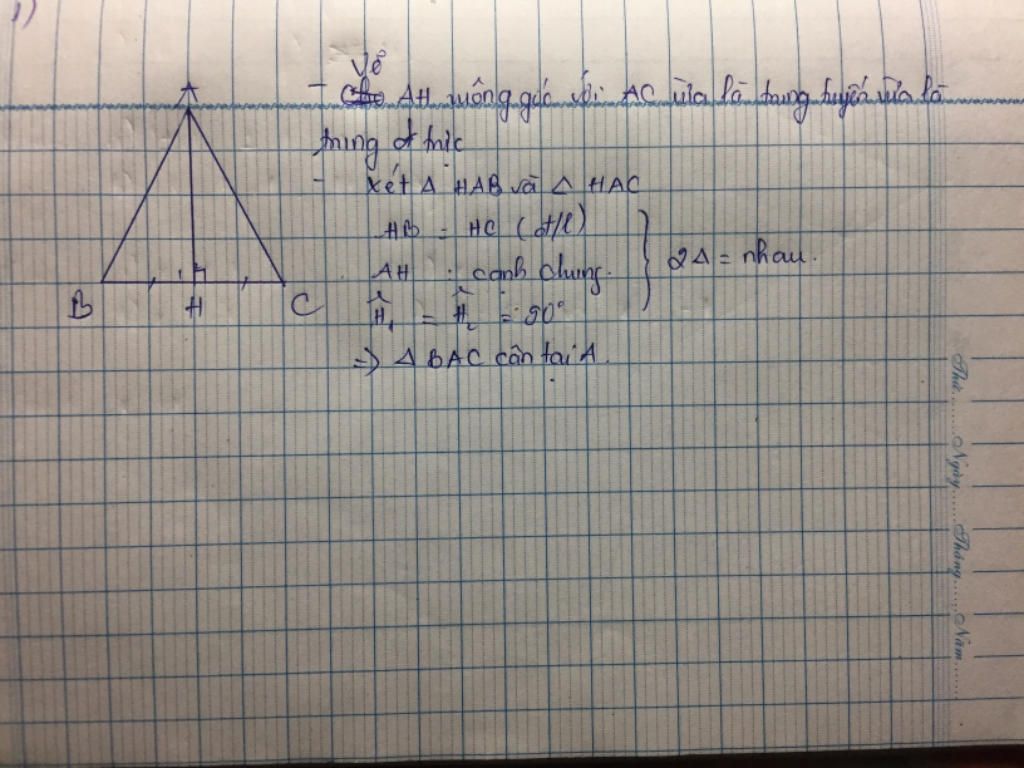 1)
Vẽ
- AH vuông góc với AC vừa là trung tuyến vừa là
trung đ trực
- Xét Δ HAB và Δ HAC
HB = HC (đ/l)
AH : cạnh chung.
Ĥ₁ = Ĥ₂ = 90°
} 2Δ = nhau.
=> Δ BAC cân tại A.
A
B H C
Thứ........Ngày........Tháng........Năm........